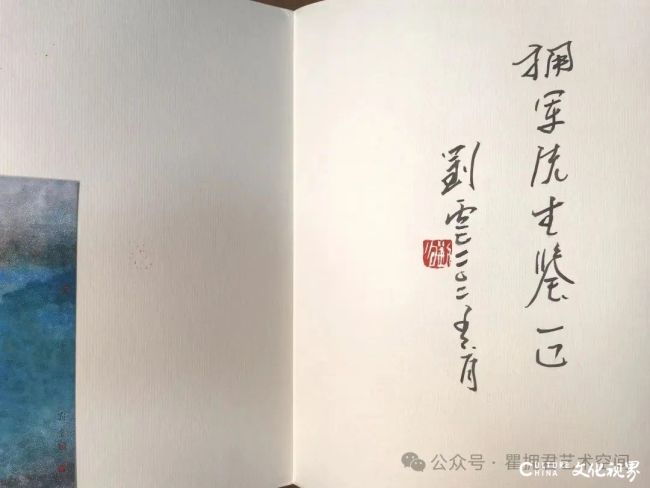 拥军先生鉴正
劉雲二〇二
公众号 · 瞿拥君艺术空间
CULTURE
CHINA 文化视界